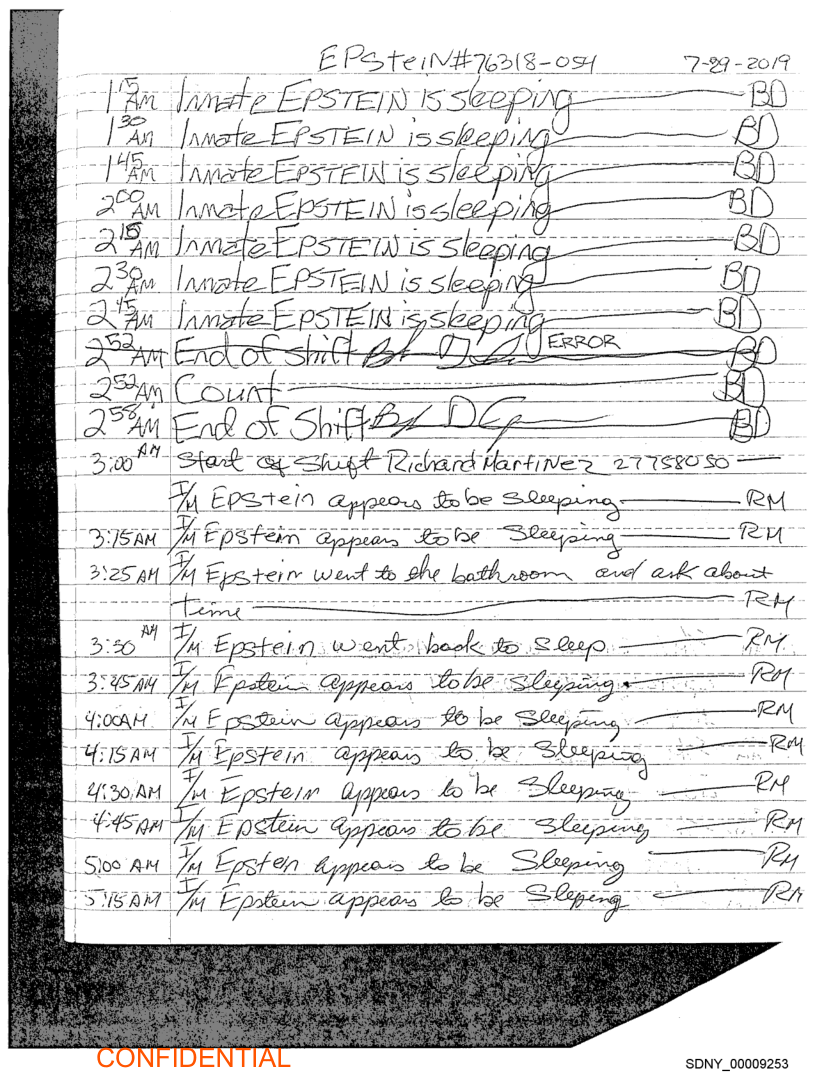 EPSteiN#76318-054 7-29-2019
1:15 AM Inmate EPSTEIN is sleeping BD
1:30 AM Inmate EPSTEIN is sleeping BD
1:45 AM Inmate EPSTEIN is sleeping BD
2:00 AM Inmate EPSTEIN is sleeping BD
2:15 AM Inmate EPSTEIN is sleeping BD
2:30 AM Inmate EPSTEIN is sleeping BD
2:45 AM Inmate EPSTEIN is sleeping BD
2:52 AM End of shift ERROR BD
2:52 AM Count BD
2:58 AM End of Shift BD
3:00 AM Start of Shift Richard Martinez 27758050
I/M EPStein appears to be Sleeping RM
3:15 AM I/M Epstein appears to be Sleeping RM
3:25 AM I/M Epstein went to the bathroom and ask about
time RM
3:30 AM I/M Epstein went back to sleep RM
3:45 AM I/M Epstein appears to be sleeping. RM
4:00AM I/M Epstein appears to be Sleeping RM
4:15 AM I/M Epstein appears to be Sleeping RM
4:30 AM I/M Epstein appears to be Sleeping RM
4:45 AM I/M Epstein appears to be Sleeping RM
5:00 AM I/M Epsten appears to be Sleeping RM
5:15 AM I/M Epstein appears to be Sleping RM
CONFIDENTIAL
SDNY_00009253